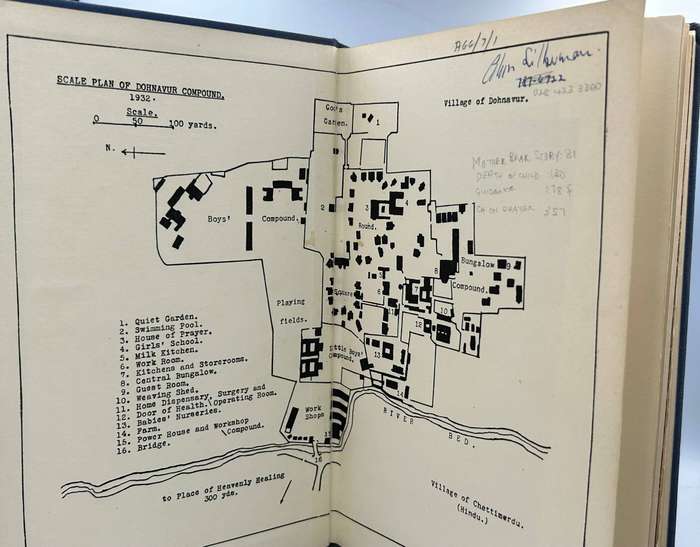 A66/7/1
787-6722
SCALE PLAN OF DOHNAVUR COMPOUND.
1932.
Scale.
0 50 100 yards.
N.
Village of Dohnavur.
God's
Garden.
1
MOTHER BEAR STORY 81
DEATH OF CHILD 180
GUIDANCE
357
Boys' Compound.
2
3
4
Round.
Bungalow
Compound.
9
8
5
6
7
Square
10
11
12
Playing
fields.
Little Boys'
Compound.
13
14
Work
Shops
15
16
RIVER BED.
1. Quiet Garden.
2. Swimming Pool.
3. House of Prayer.
4. Girls' School.
5. Milk Kitchen.
6. Work Room.
7. Kitchens and Storerooms.
8. Central Bungalow.
9. Guest Room.
10. Weaving Shed.
11. Home Dispensary, Surgery and
12. Door of Health. (Operating Room.
13. Babies' Nurseries.
14. Farm.
15. Power House and Workshop
16. Bridge. (Compound.
to Place of Heavenly Healing
300 yds.
Village of Chettimerdu.
(Hindu.)